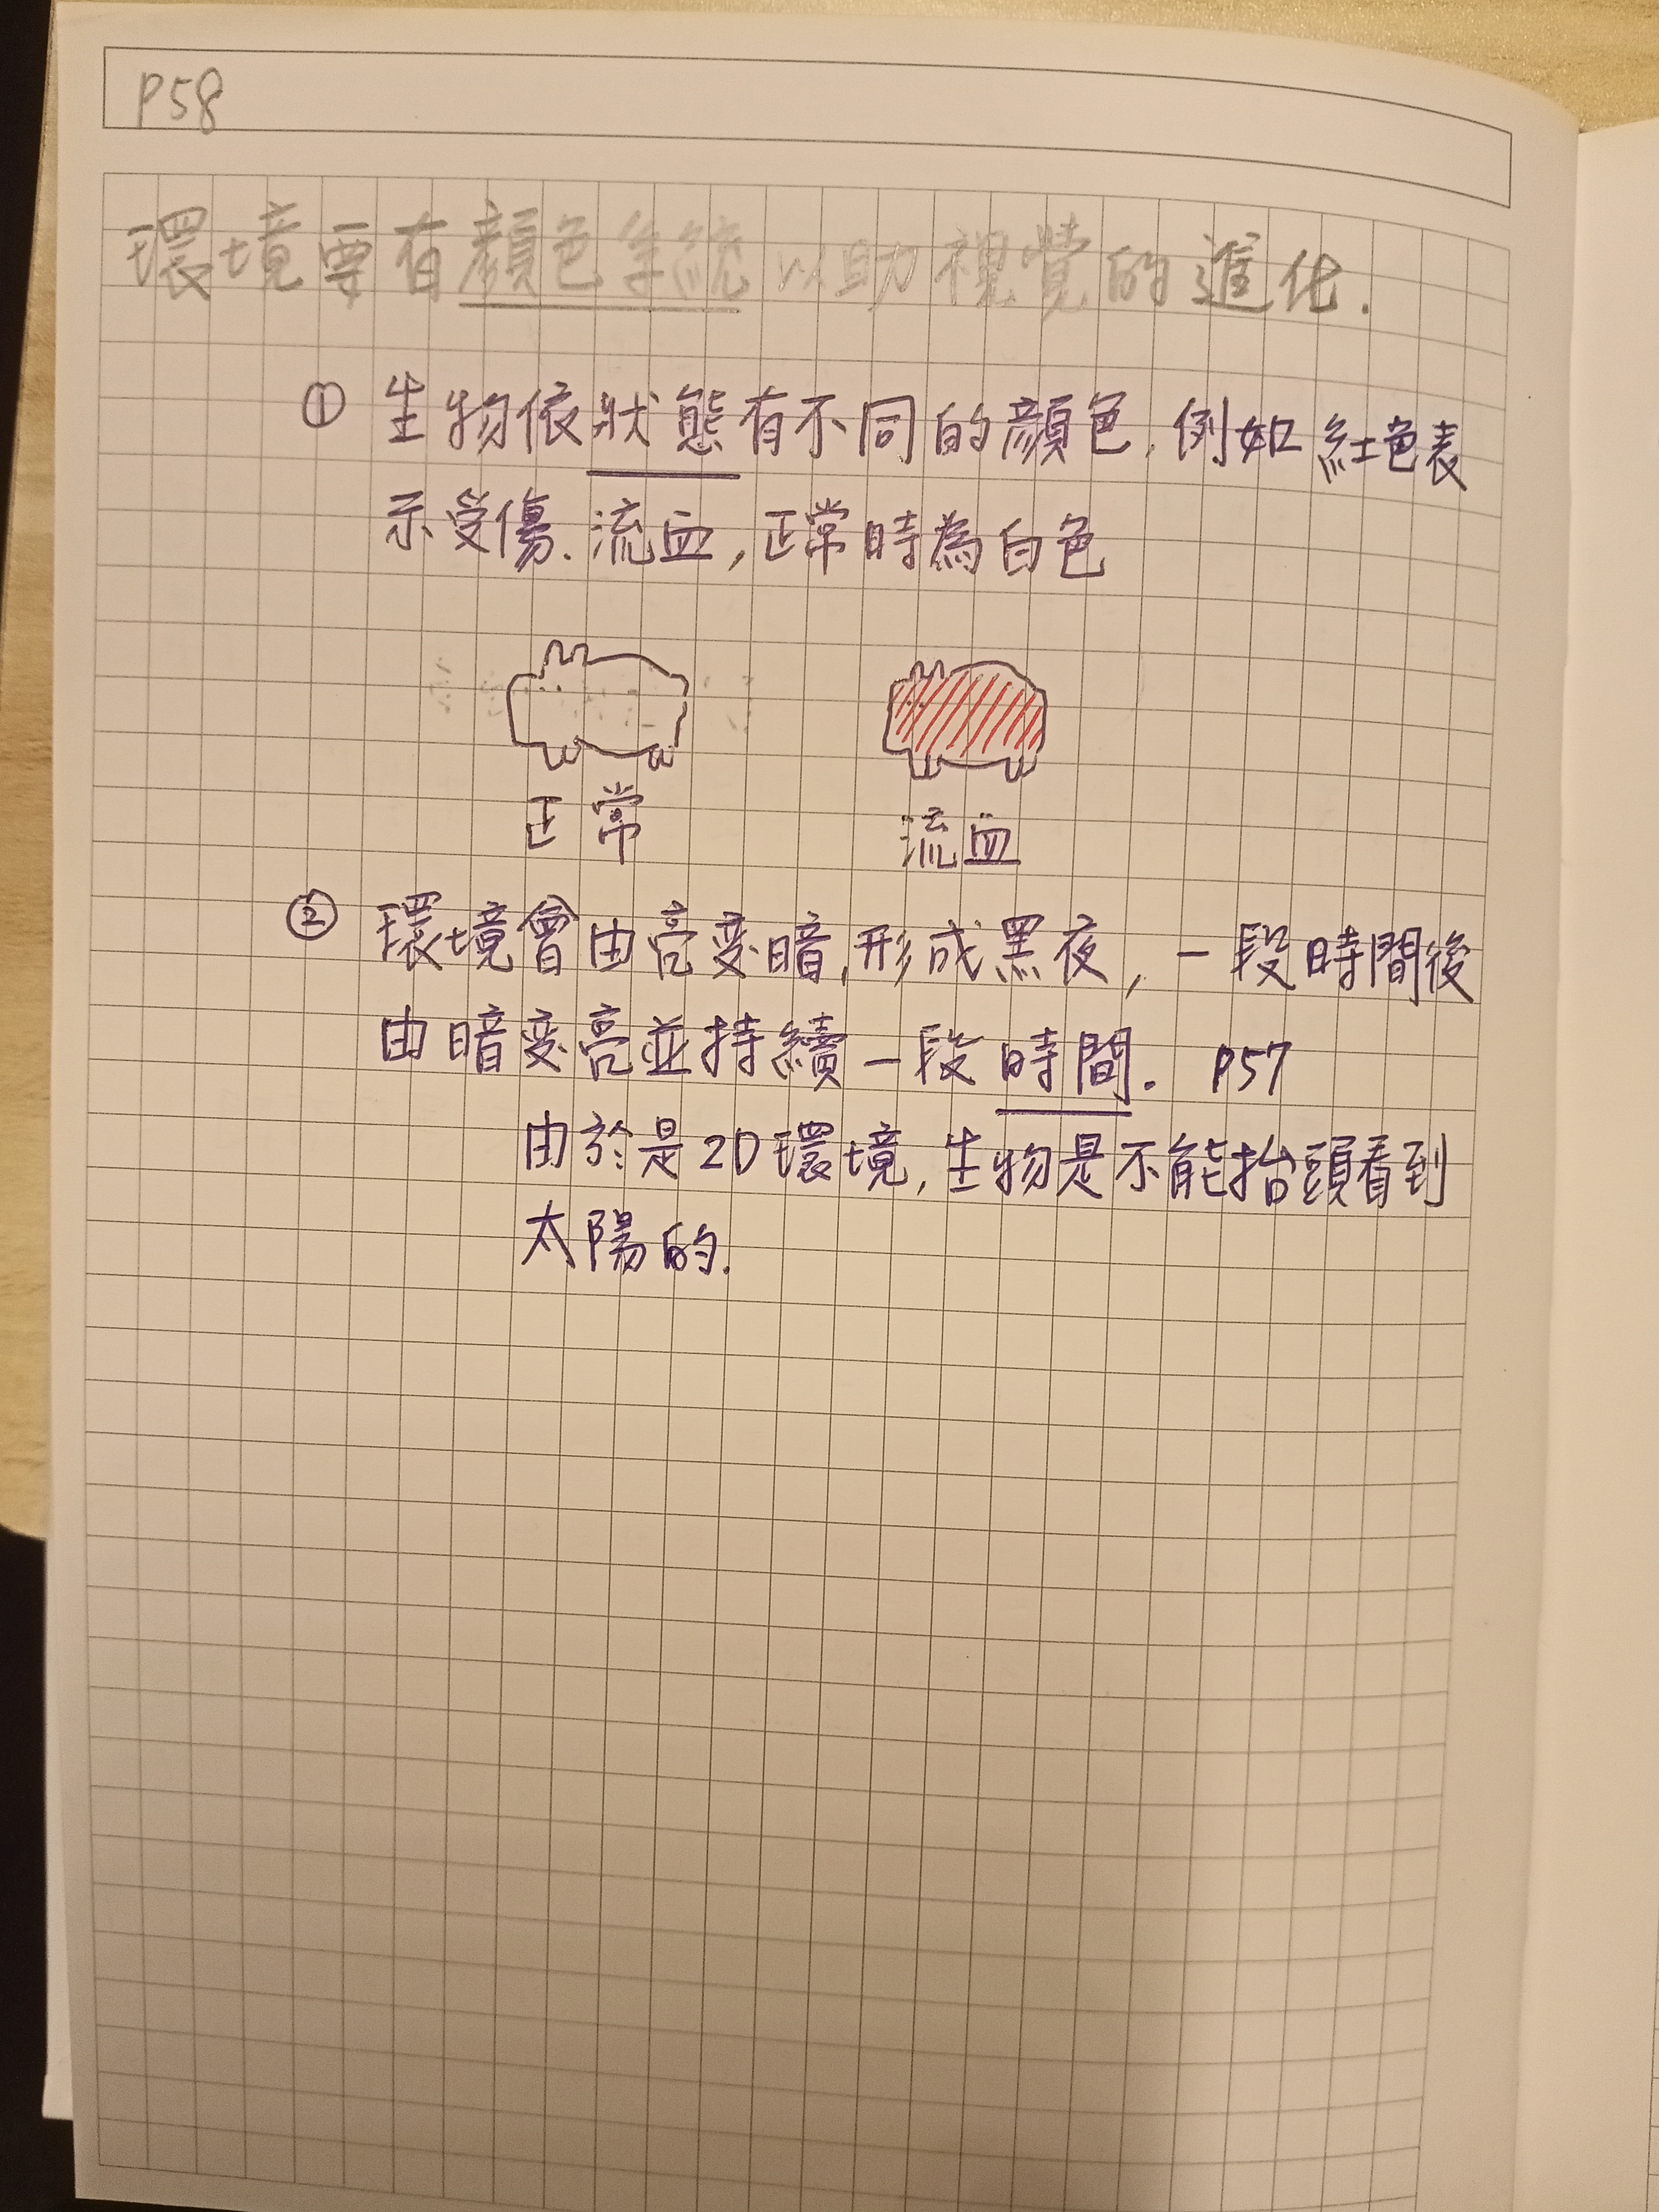 P58
環境要有顏色系統以助視覺的進化.
① 生物依狀態有不同的顏色,例如紅色表
示受傷.流血,正常時為白色
正常
流血
② 環境會由亮变暗,形成黑夜,一段時間後
由暗变亮並持續一段時間. P57
由於是2D環境,生物是不能抬頭看到
太陽的.